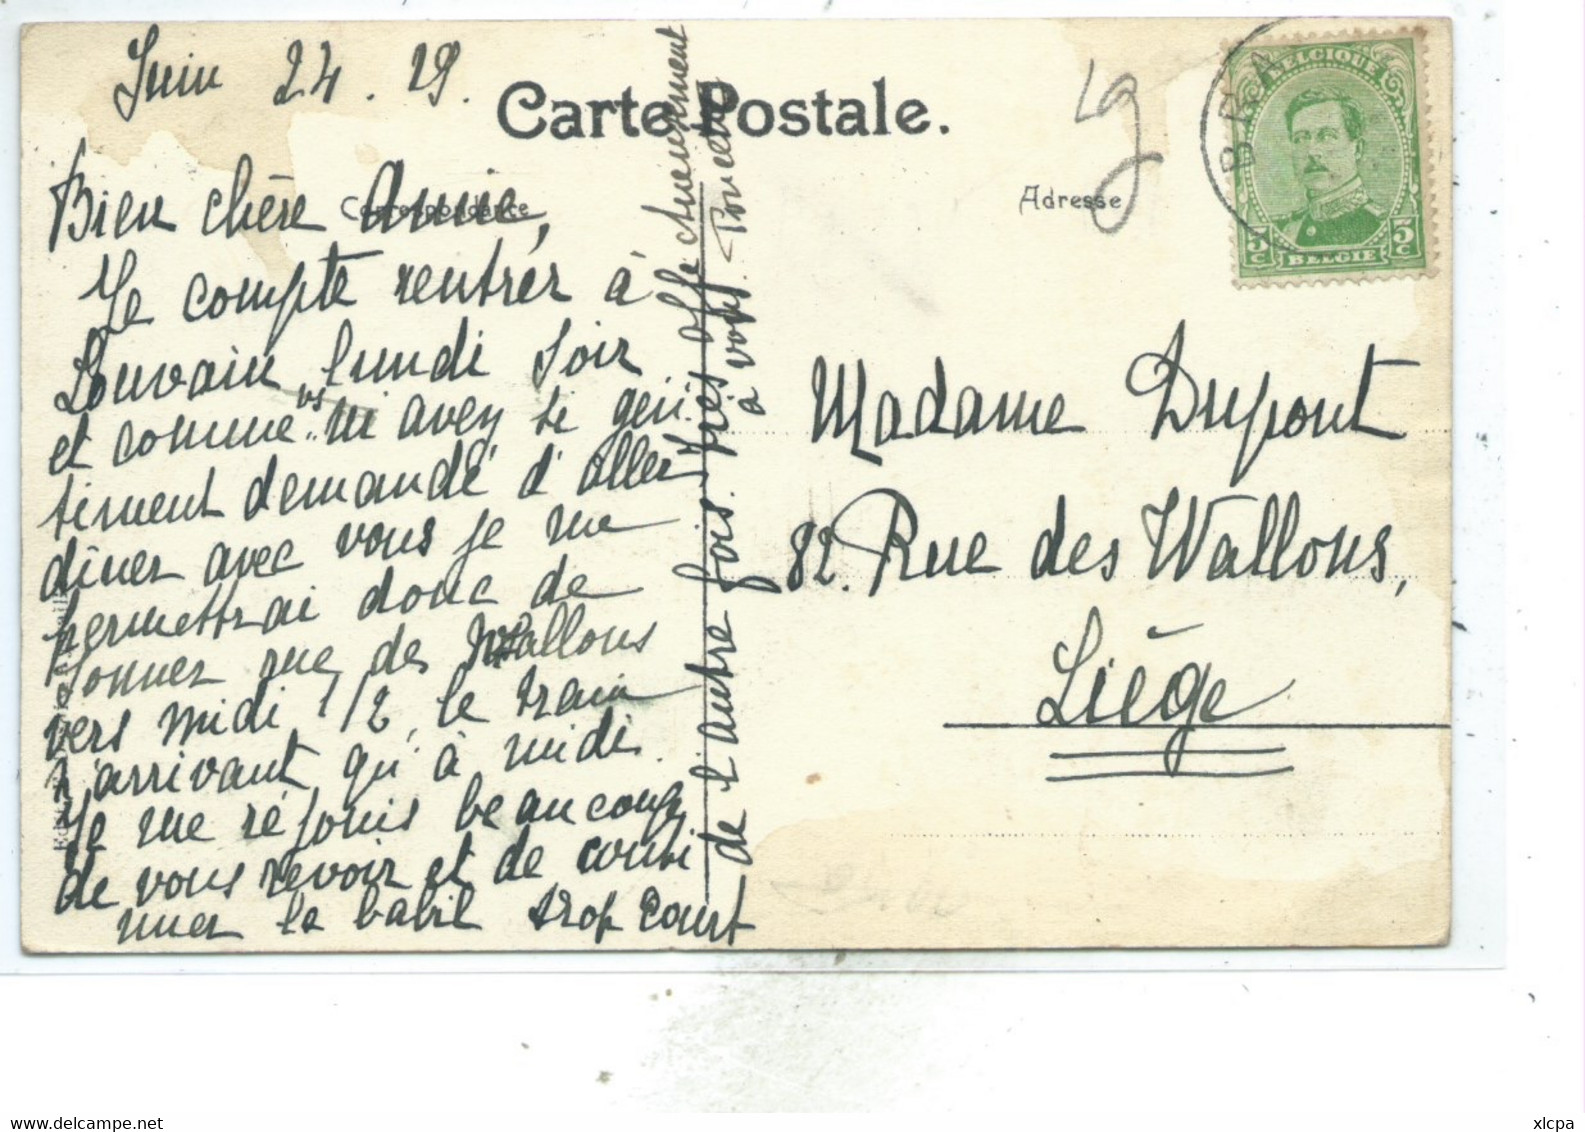 Juin 24. 19.
Carte Postale.
Correspondance
Adresse
Bien chère Annie,
Je compte rentrer à
Louvain lundi soir
et comme vs m'avez si gen
timent demandé d'aller
dîner avec vous je me
permettrai donc de
sonner rue des Wallons
vers midi 1/2, le train
n'arrivant qu'à midi.
Je me réjouis beaucoup
de vous revoir et de conti
nuer le babil trop court
de l'autre fois. Très affectueusement
à vous.
BRA
BELGIQUE
5c 5c
BELGIE
Madame Dupont
82. Rue des Wallons,
Liège
xlcpa
Delcampe.net